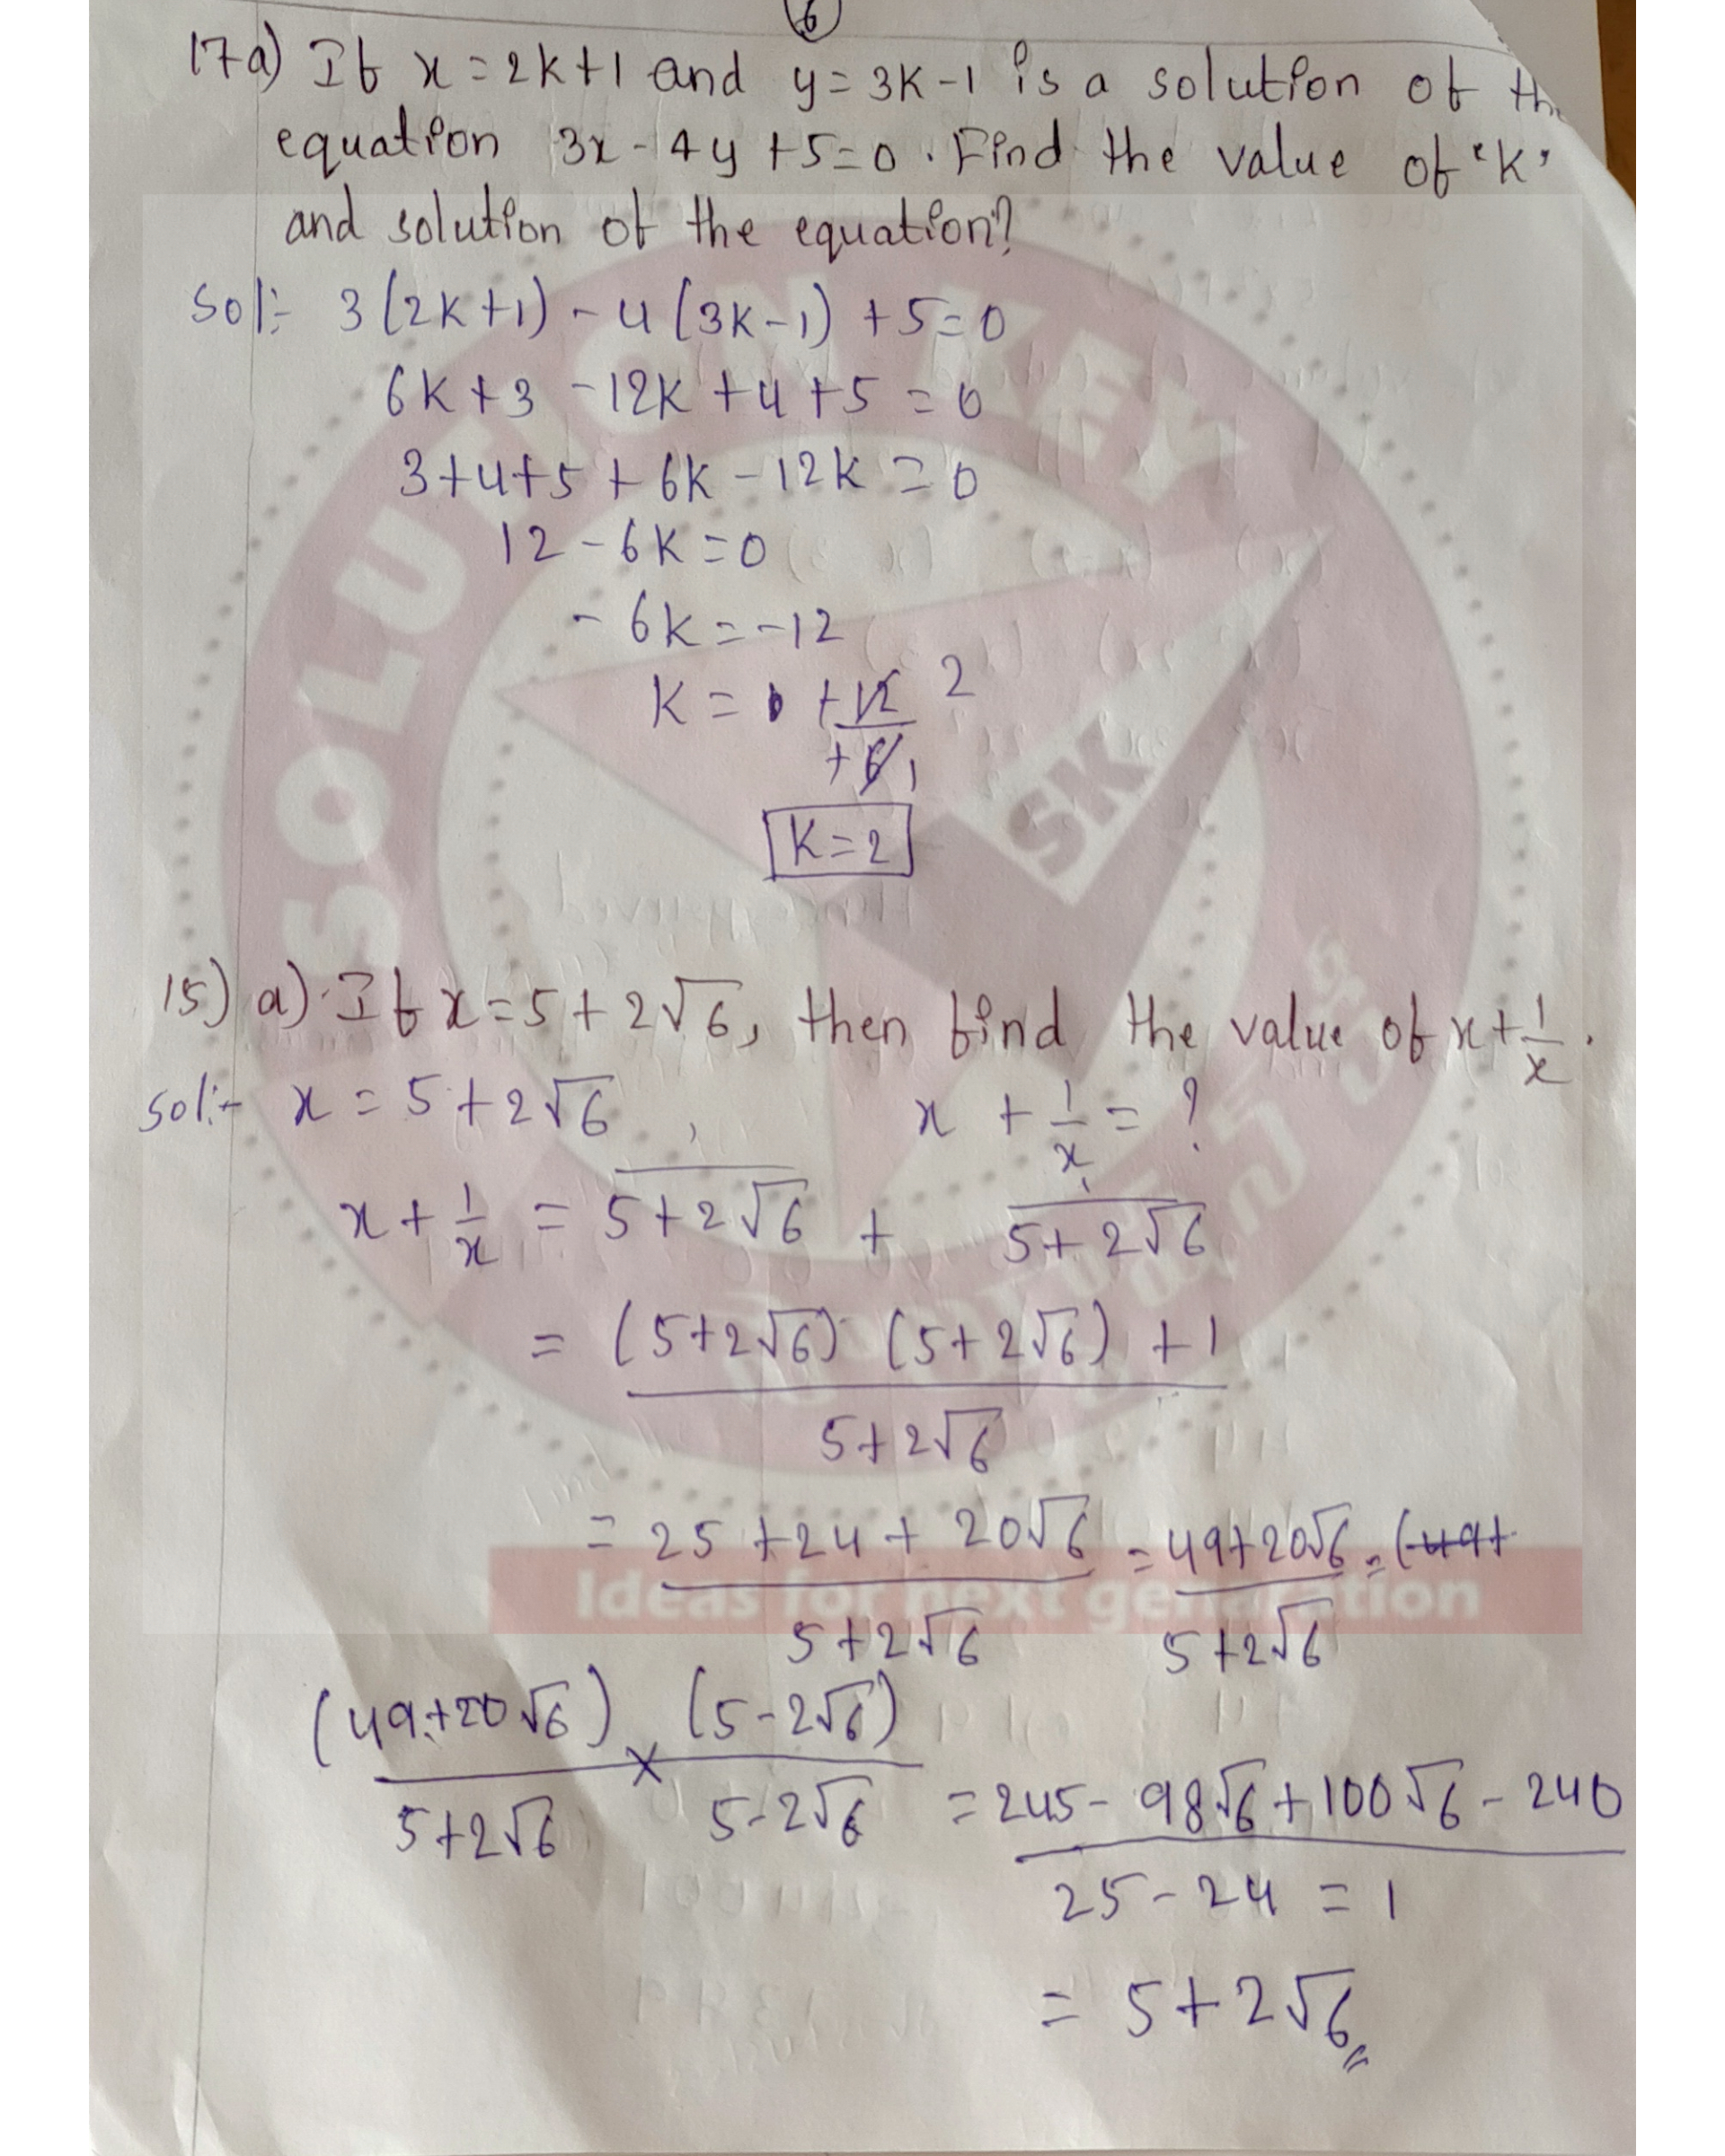 6
17a) If x = 2k+1 and y = 3k-1 is a solution of th
equation 3x - 4y + 5 = 0. Find the value of 'k'
and solution of the equation?
Sol:- 3(2k+1) - 4(3k-1) + 5 = 0
6k + 3 - 12k + 4 + 5 = 0
3+4+5 + 6k - 12k = 0
12 - 6k = 0
- 6k = -12
k = +12/+6 2 1
k = 2
15) a) If x = 5 + 2√6, then find the value of x + 1/x.
Sol:- x = 5 + 2√6, x + 1/x = ?
x + 1/x = 5 + 2√6 + 1/(5 + 2√6)
= (5+2√6) (5+2√6) + 1
5+2√6
= 25 + 24 + 20√6 = 49+20√6 = (49+
5+2√6 5+2√6
(49+20√6) × (5-2√6) = 245 - 98√6 + 100√6 - 240
5+2√6 5-2√6 25 - 24 = 1
= 5 + 2√6
SOLUTION KEY
SK
Ideas for next generation